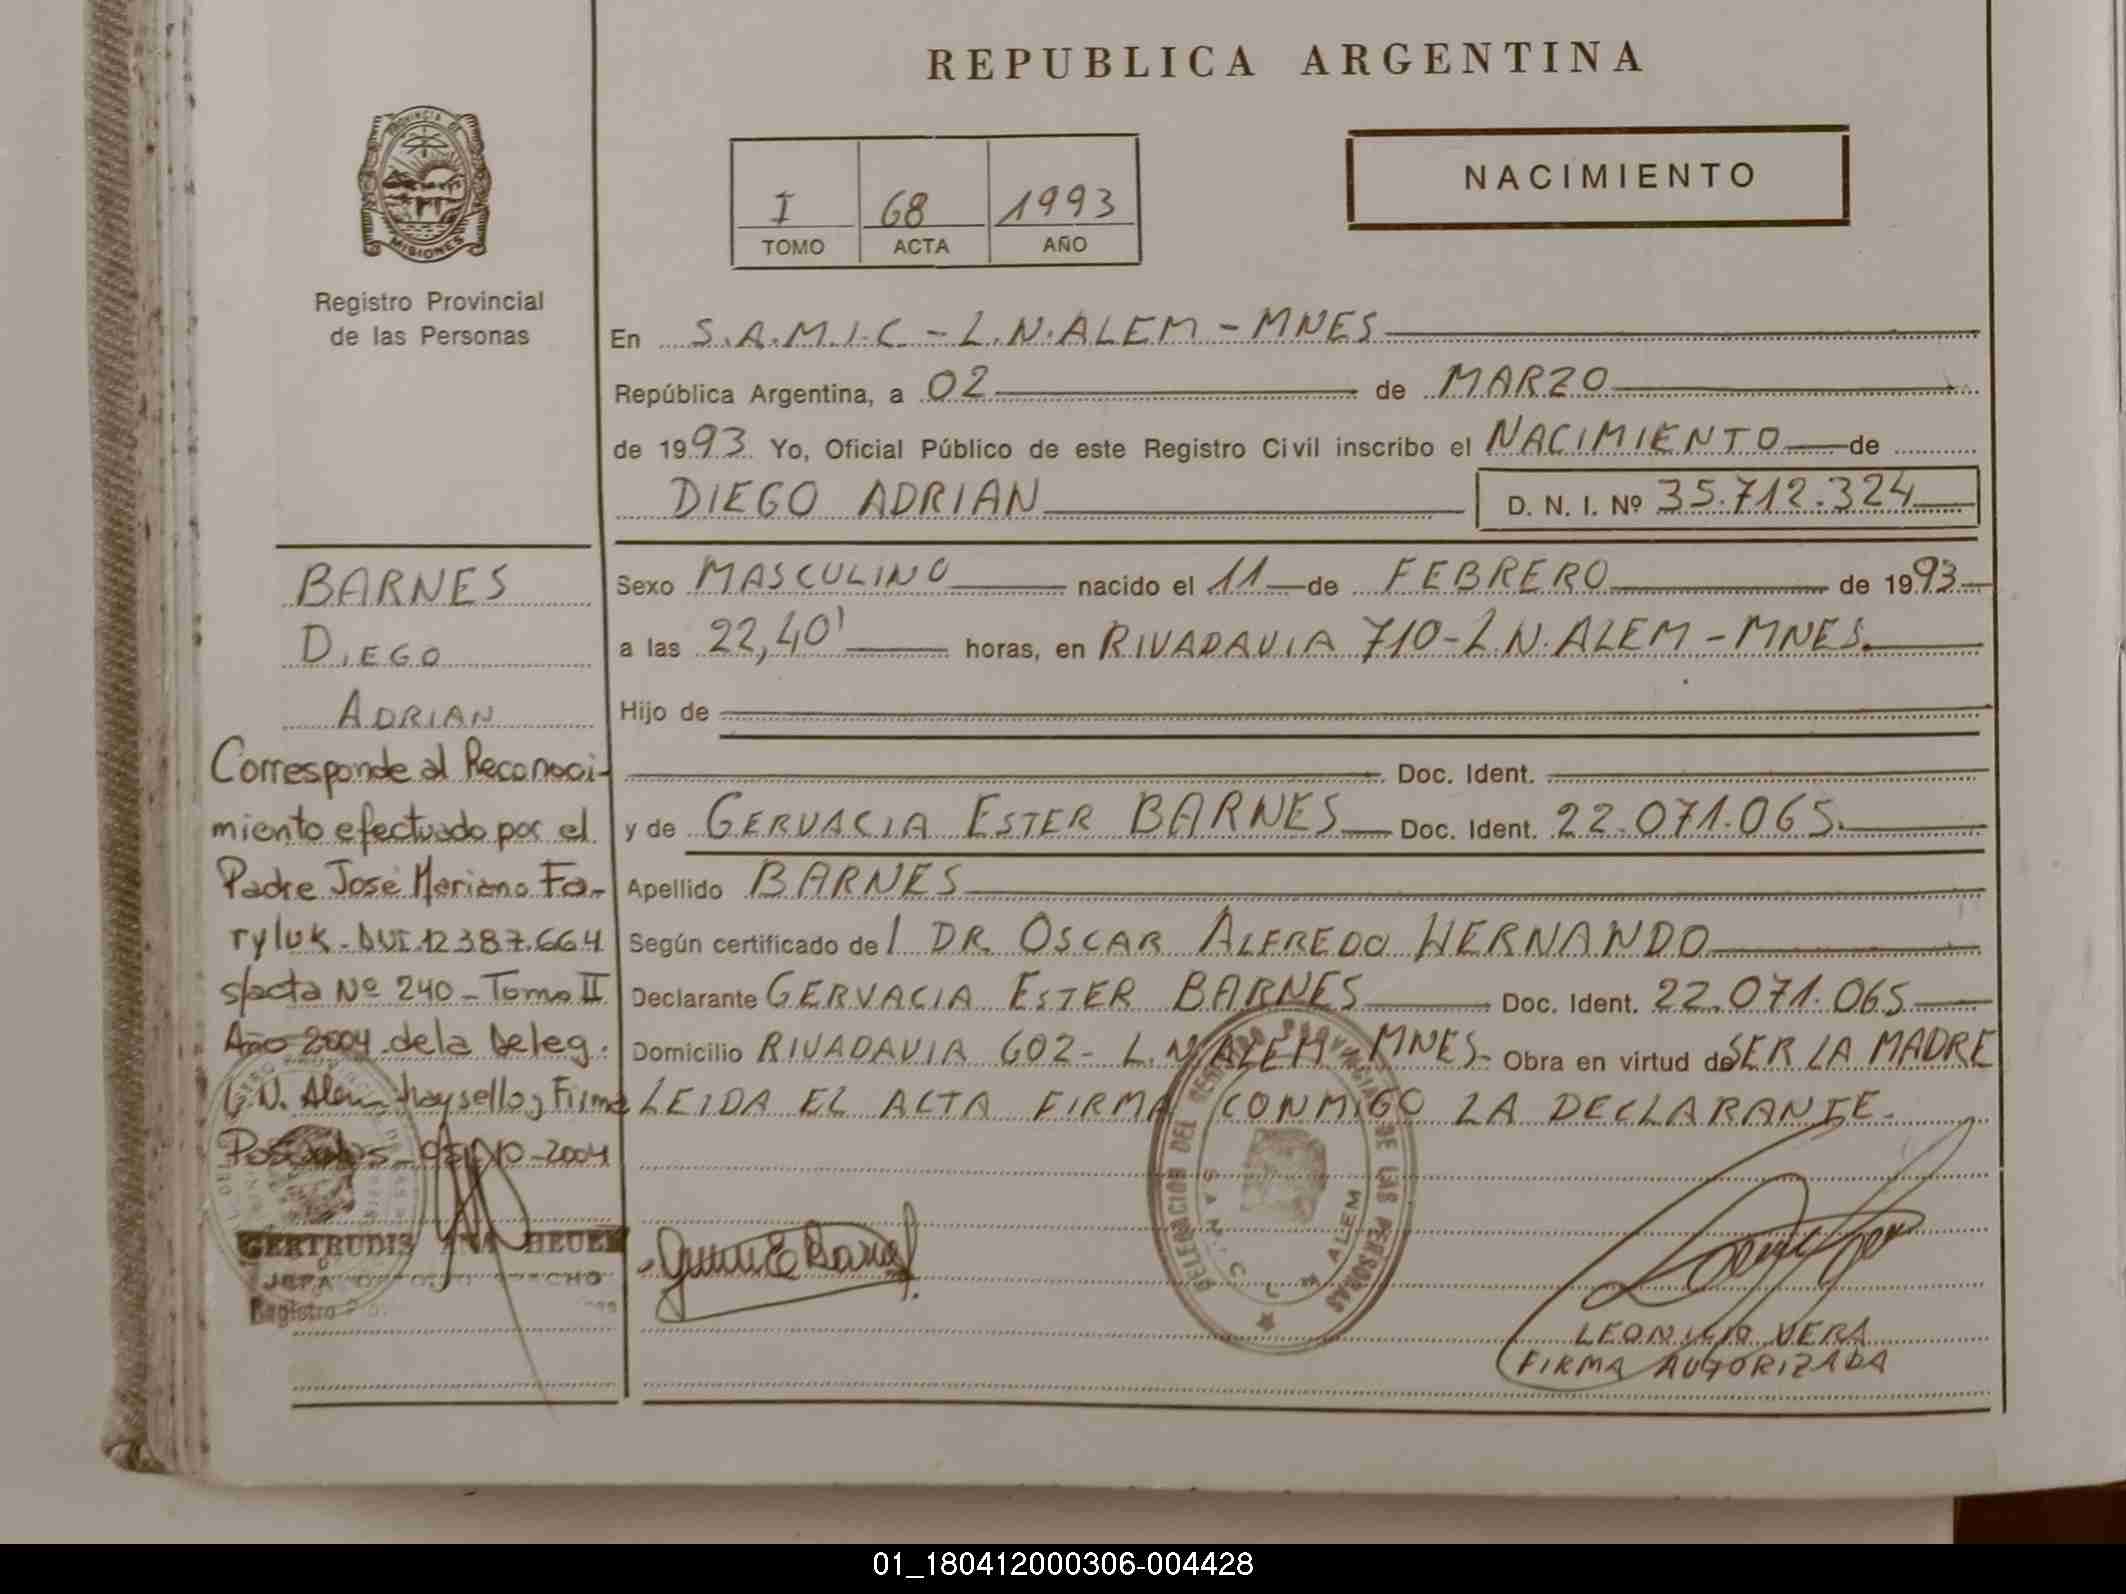 REPUBLICA ARGENTINA
PROVINCIA DE
MISIONES
Registro Provincial
de las Personas
I 68 1993
TOMO ACTA AÑO
NACIMIENTO
En S.A.M.I.C. - L.N.ALEM - MNES
República Argentina, a 02 de MARZO
de 1993 Yo, Oficial Público de este Registro Civil inscribo el NACIMIENTO de
DIEGO ADRIAN D. N. I. Nº 35.712.324
Sexo MASCULINO nacido el 11 de FEBRERO de 1993
a las 22,40' horas, en RIVADAVIA 710-L.N.ALEM-MNES.
Hijo de
Doc. Ident.
y de GERVACIA ESTER BARNES Doc. Ident. 22.071.065.
Apellido BARNES
Según certificado de l DR. OSCAR ALFREDO HERNANDO
Declarante GERVACIA ESTER BARNES Doc. Ident. 22.071.065
Domicilio RIVADAVIA 602- L.N.ALEM MNES- Obra en virtud de SER LA MADRE
LEIDA EL ACTA FIRMA CONMIGO LA DECLARANTE.
BARNES
DIEGO
ADRIAN
Corresponde al Reconoci-
miento efectuado por el
Padre José Mariano Fa-
ryluk - DNI 12387.664
s/acta Nº 240 - Tomo II
Año 2004 de la Deleg.
L.N. Alem - hay sello y Firma
Posadas - 2004
GERTRUDIS ANA
JEFA
Registro
DELEGACION DEL REGISTRO PROVINCIAL DE LAS PERSONAS
ALEM
LEONICIO VERA
FIRMA AUTORIZADA
01_180412000306-004428